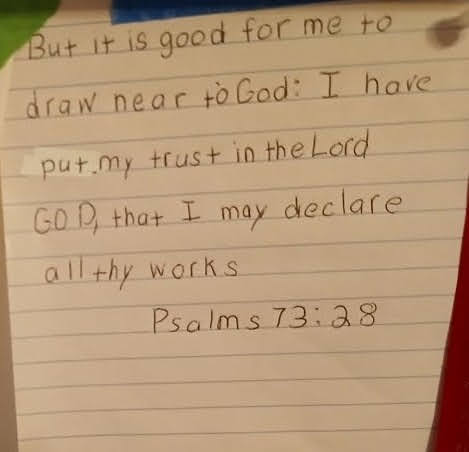 But it is good for me to
draw near to God: I have
put my trust in the Lord
GOD, that I may declare
all thy works
Psalms 73:28